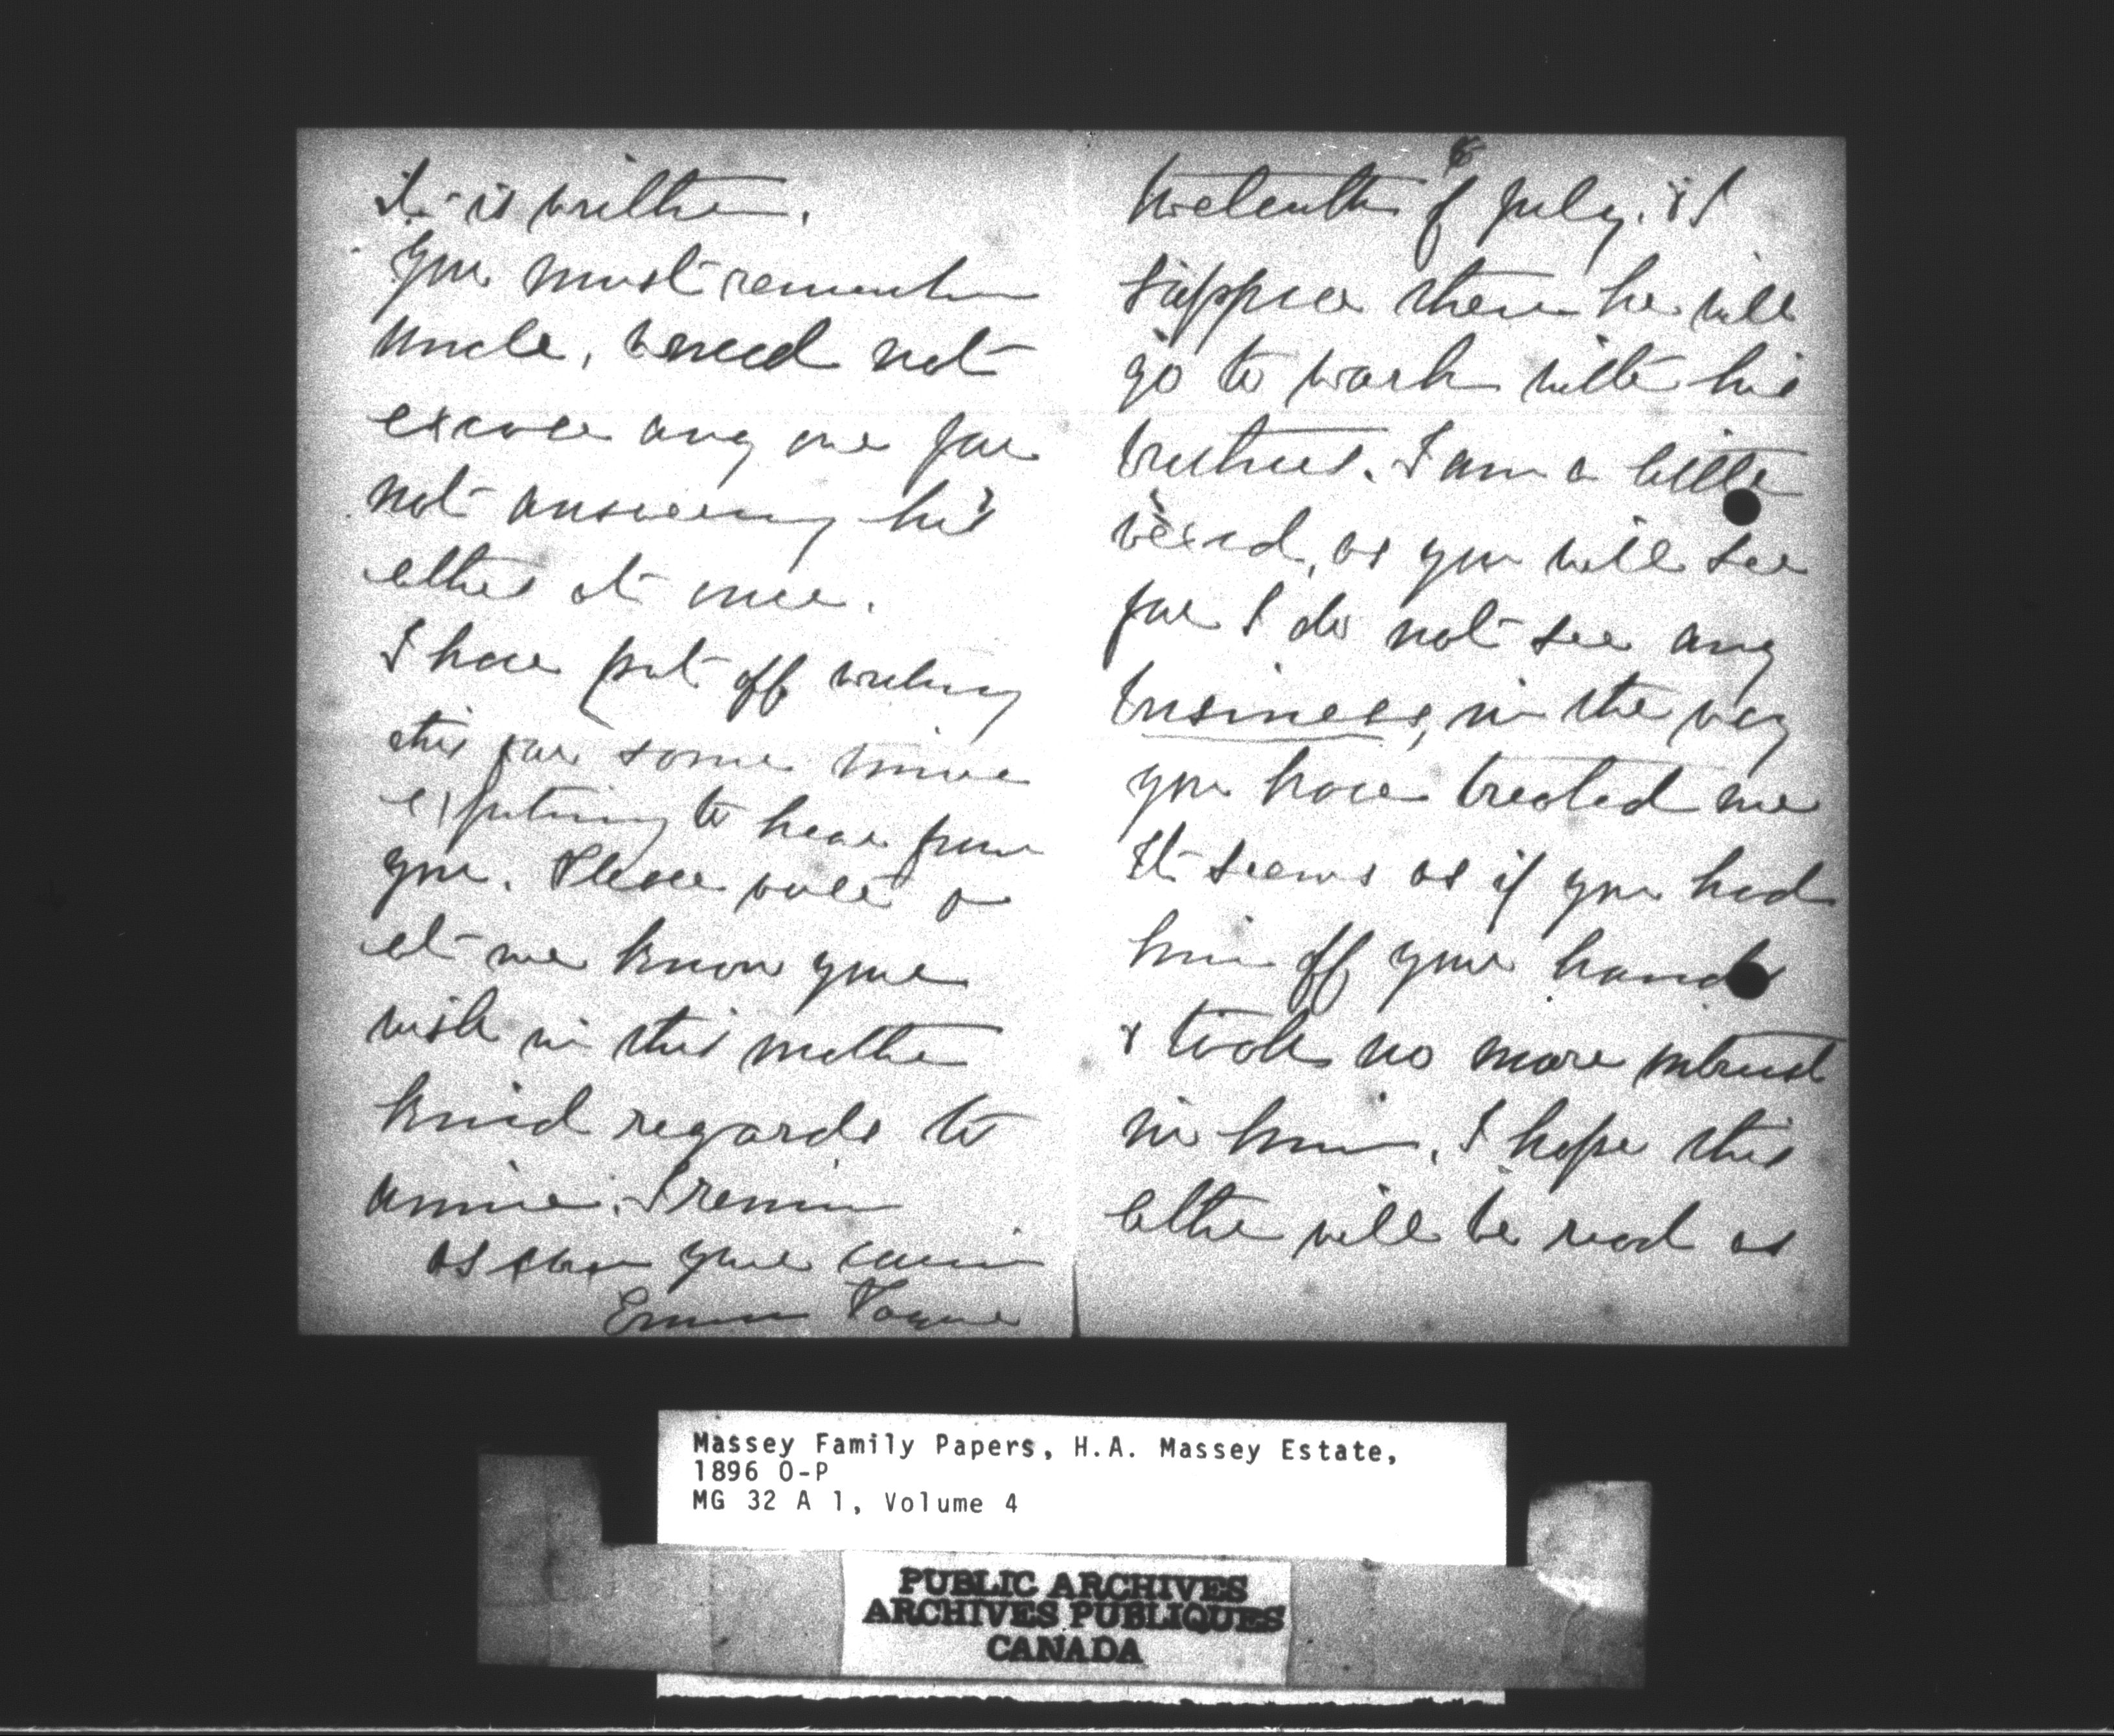 it is written.
You must remember
Uncle, would not
excuse any one for
not answering his
letter at once.
I have put off writing
this for some time
expecting to hear from
you. Please write &
let me know your
wish in this matter
kind regards to
Annie. I remain
as ever your cousin
Emma Payne
twelveth of July. & I
suppose then he will
go to work with his
brothers. I am a little
vexed, as you will see
for I do not see any
business, in the way
you have treated me
It seems as if you had
him off your hands
& took no more intrest
in him. I hope this
letter will be read as
Massey Family Papers, H.A. Massey Estate,
1896 O-P
MG 32 A 1, Volume 4
PUBLIC ARCHIVES
ARCHIVES PUBLIQUES
CANADA